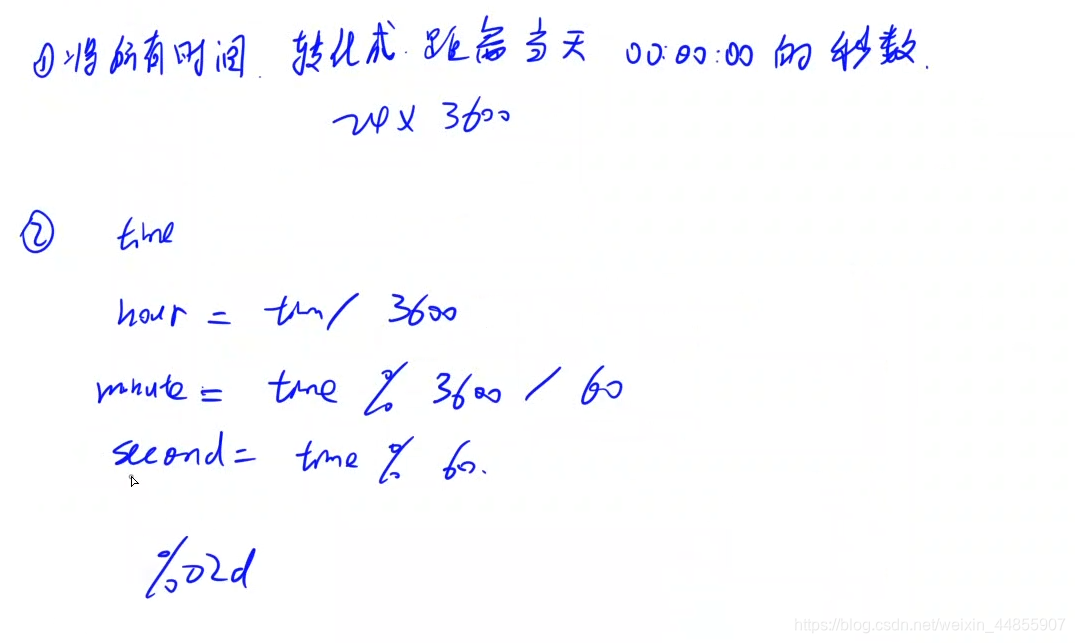 ①将所有时间 转化成 距离当天 00:00:00 的 秒数.
24 x 3600
② time
hour = tim/ 3600
minute = time % 3600 / 60
second = time % 60.
%02d
https://blog.csdn.net/weixin_44855907